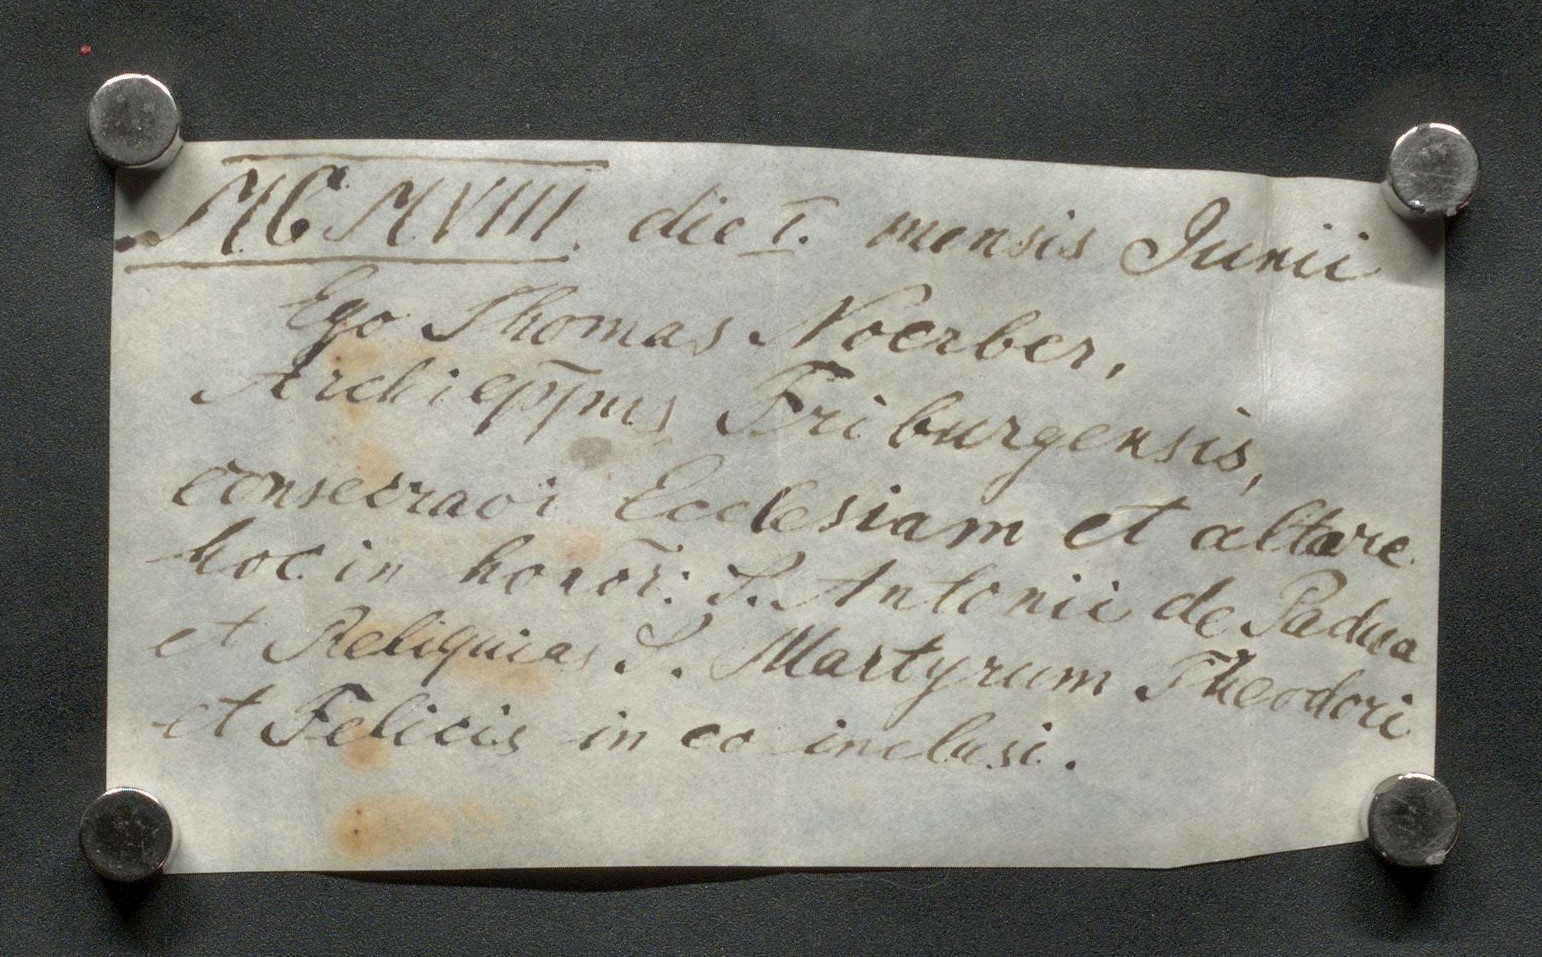 MCMVIII. die I. mensis Junii
Ego Thomas Noerber,
Archiep̄p̄us Friburgensis,
consecravi Ecclesiam et altare
hoc in honōr: S. Antonii de Padua
et Reliquias S. Martyrum Theodori
et Felicis in eo inclusi.